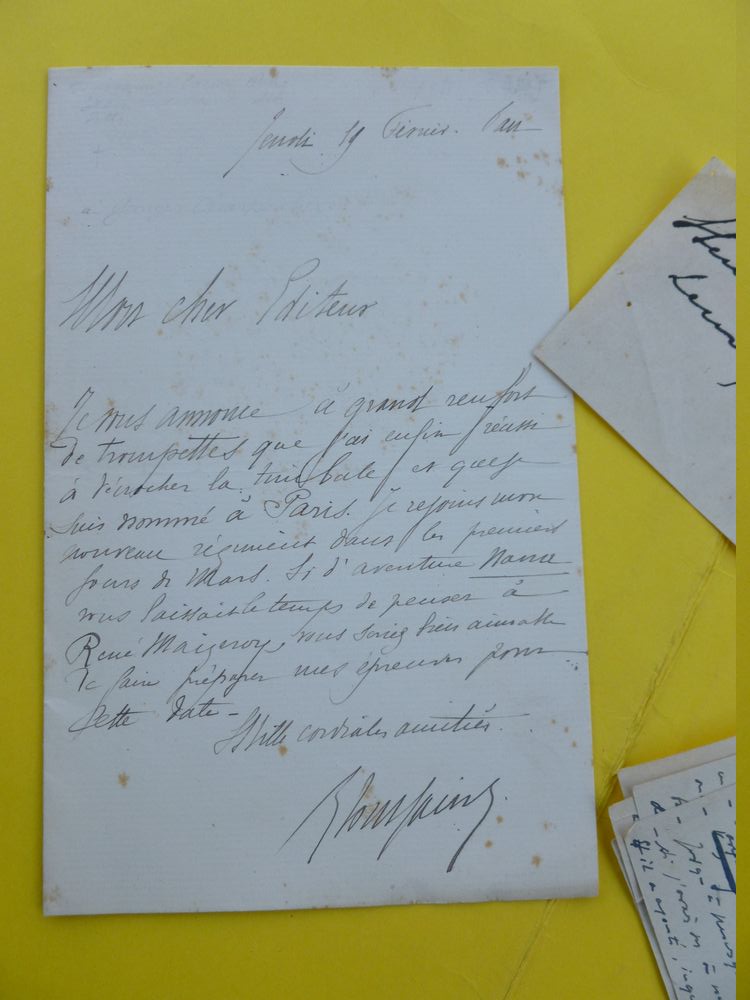 Jeudi 19 Février. Pau
Mon cher Editeur
Je vous annonce à grand renfort
de trompettes que j'ai enfin réussi
à décrocher la timbale et que je
suis nommé à Paris. Je rejoins mon
nouveau régiment dans les premiers
jours de Mars. Si d'aventure Nana
vous laissait le temps de penser à
René Maizeroy, vous seriez bien aimable
de faire préparer mes épreuves pour
cette date -
Mille cordiales amitiés.